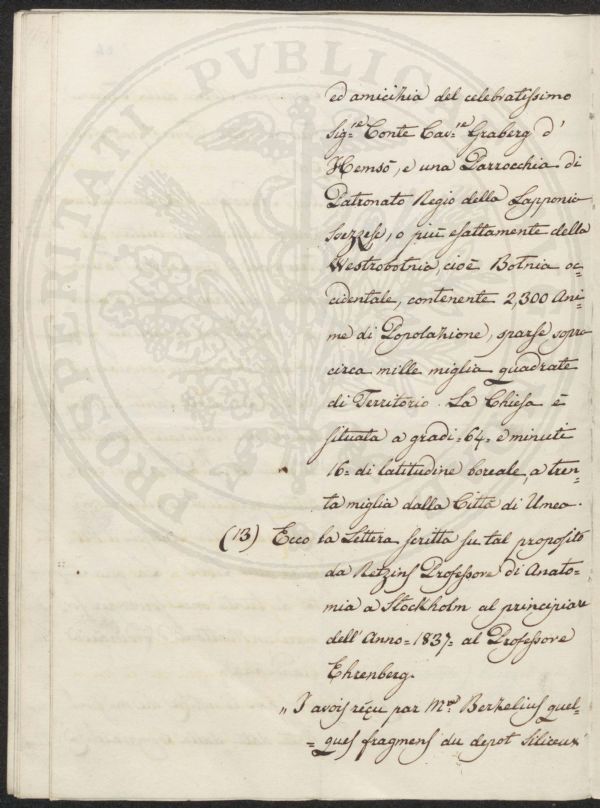 PROSPERITATI PVBLIC
ed amicizia del celebratissimo
Sig.re Conte Cav.re Graberg d'
Hemsö, e una Parrocchia di
Patronato Regio della Lapponia
Svezzese, o più esattamente della
Westrobotnia, cioè Botnia oc=
cidentale, contenente 2,300 Ani=
me di Popolazione, sparse sopra
circa mille miglia quadrate
di Territorio. La Chiesa è
situata a gradi=64= e minuti
16= di latitudine boreale, a tren=
ta miglia dalla Città di Umea.
(13) Ecco la Lettera scritta su tal proposito
da Retzins Professore di Anato=
mia a Stockholm al principiare
dell'Anno=1837= al Professore
Ehrenberg.
„ J avois reçu par M.r Berzelius quel=
=ques fragmens du depot siliceux